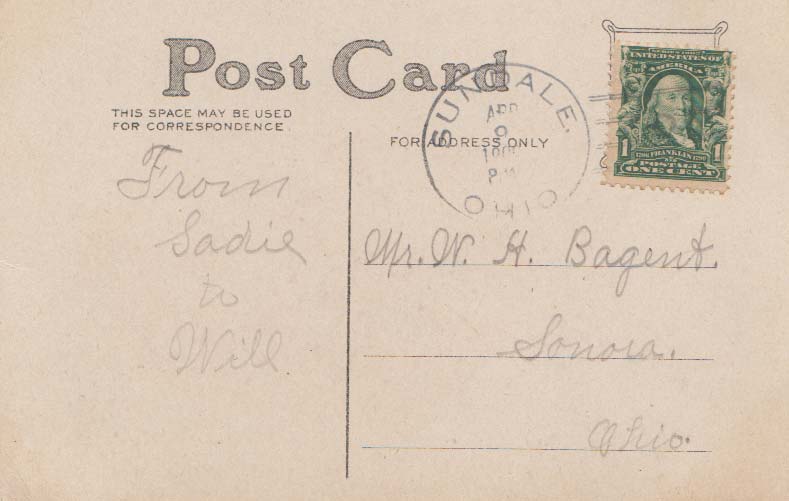 Post Card
THIS SPACE MAY BE USED
FOR CORRESPONDENCE.
FOR ADDRESS ONLY
SUNDALE.
APR
9
OHIO
UNITED STATES OF
AMERICA
1 FRANKLIN 1
POSTAGE
ONE CENT
From
Sadie
to
Will
Mr. W. H. Bagent.
Sonora.
Ohio.